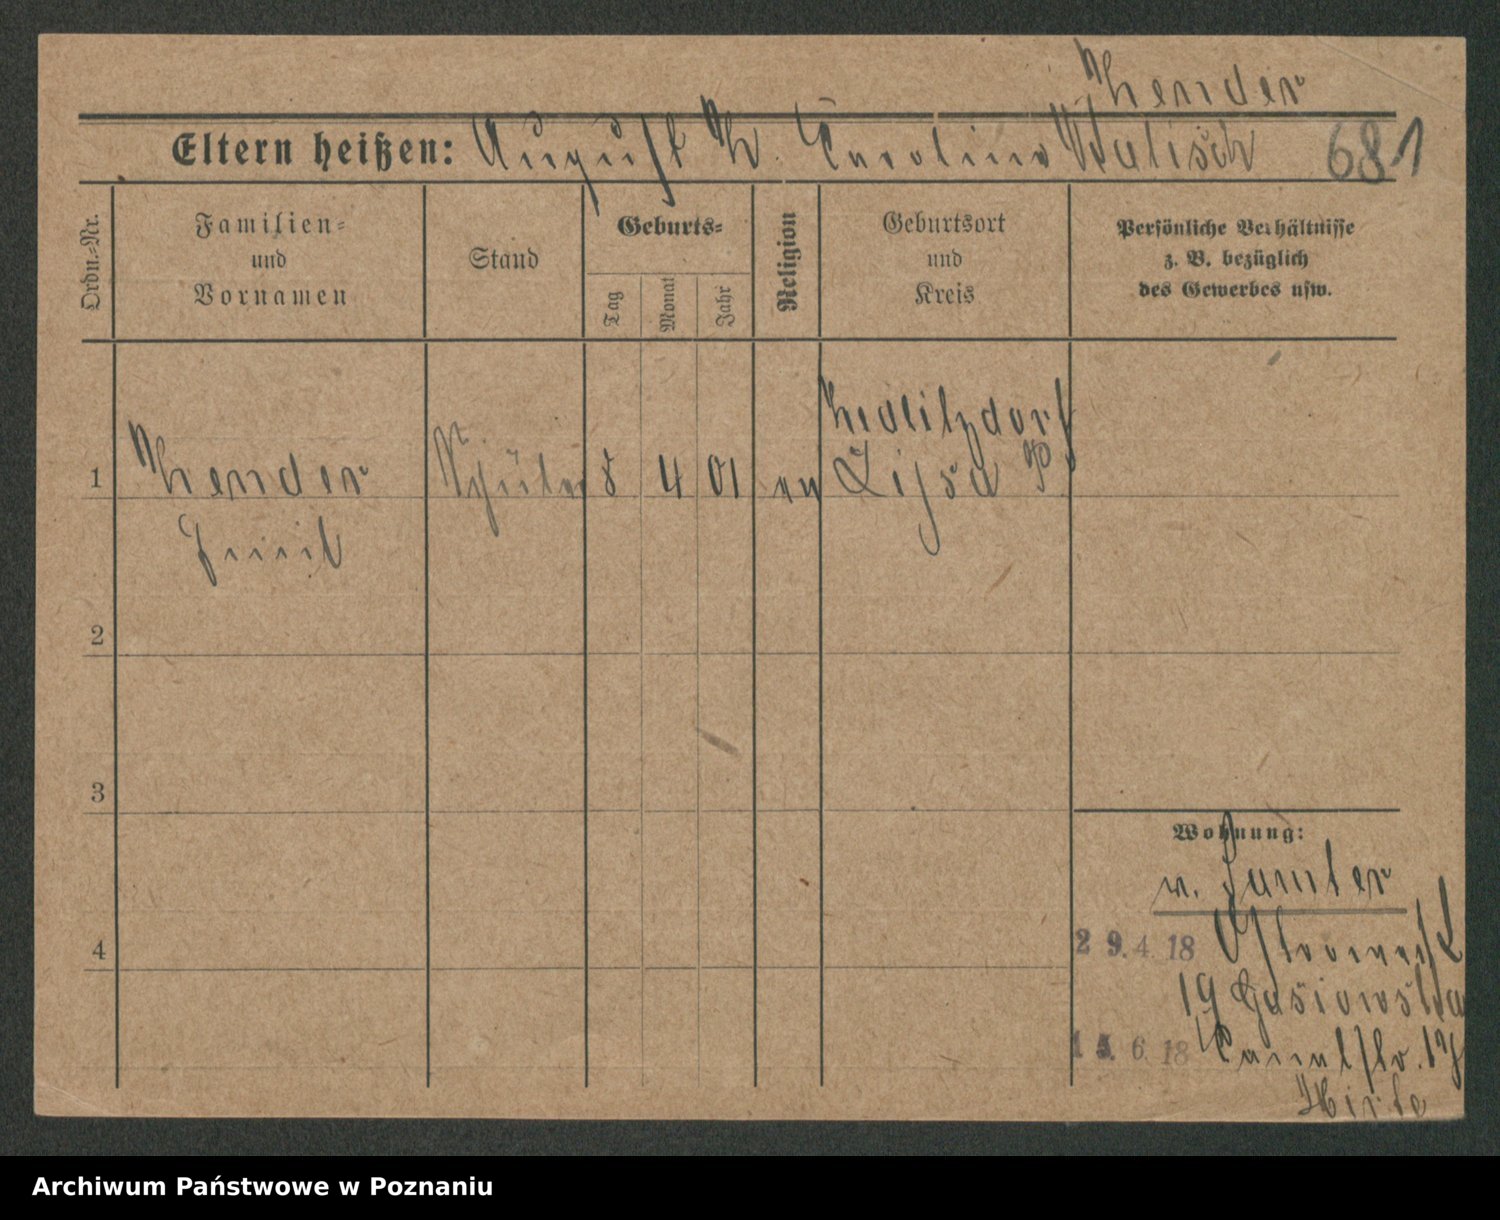 Zender
Eltern heißen: August Z. Caroline Walisch 681
Ordn.-Nr.
Familien-
und
Vornamen
Stand
Geburts-
Tag
Monat
Jahr
Religion
Geburtsort
und
Kreis
Persönliche Verhältnisse
z. B. bezüglich
des Gewerbes usw.
Zedlitzdorf
1 Zender Schüler 8 4 01 ev Lissa P
Emil
2
3
Wohnung:
v. Samter
4
29.4.18
19 Gasiowska
15.6.18 Kanalstr. 17
Hirte
Archiwum Państwowe w Poznaniu